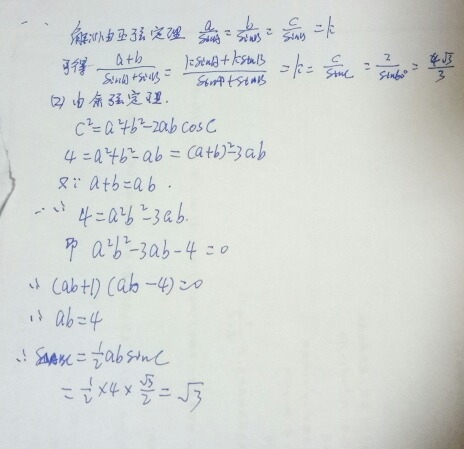 解:(1)由正弦定理 a/sinA = b/sinB = c/sinB = k
可得 (a+b)/(sinA+sinB) = (ksinA+ksinB)/(sinA+sinB) = k = c/sinC = 2/sin60° = 4√3/3
(2)由余弦定理.
c²=a²+b²-2ab cosC
4=a²+b²-ab=(a+b)²-3ab
又∵a+b=ab.
∴ 4=a²b²-3ab.
即 a²b²-3ab-4=0
∴ (ab+1)(ab-4)=0
∴ ab=4
∴ S△ABC=½absinC
=½×4×√3/2=√3